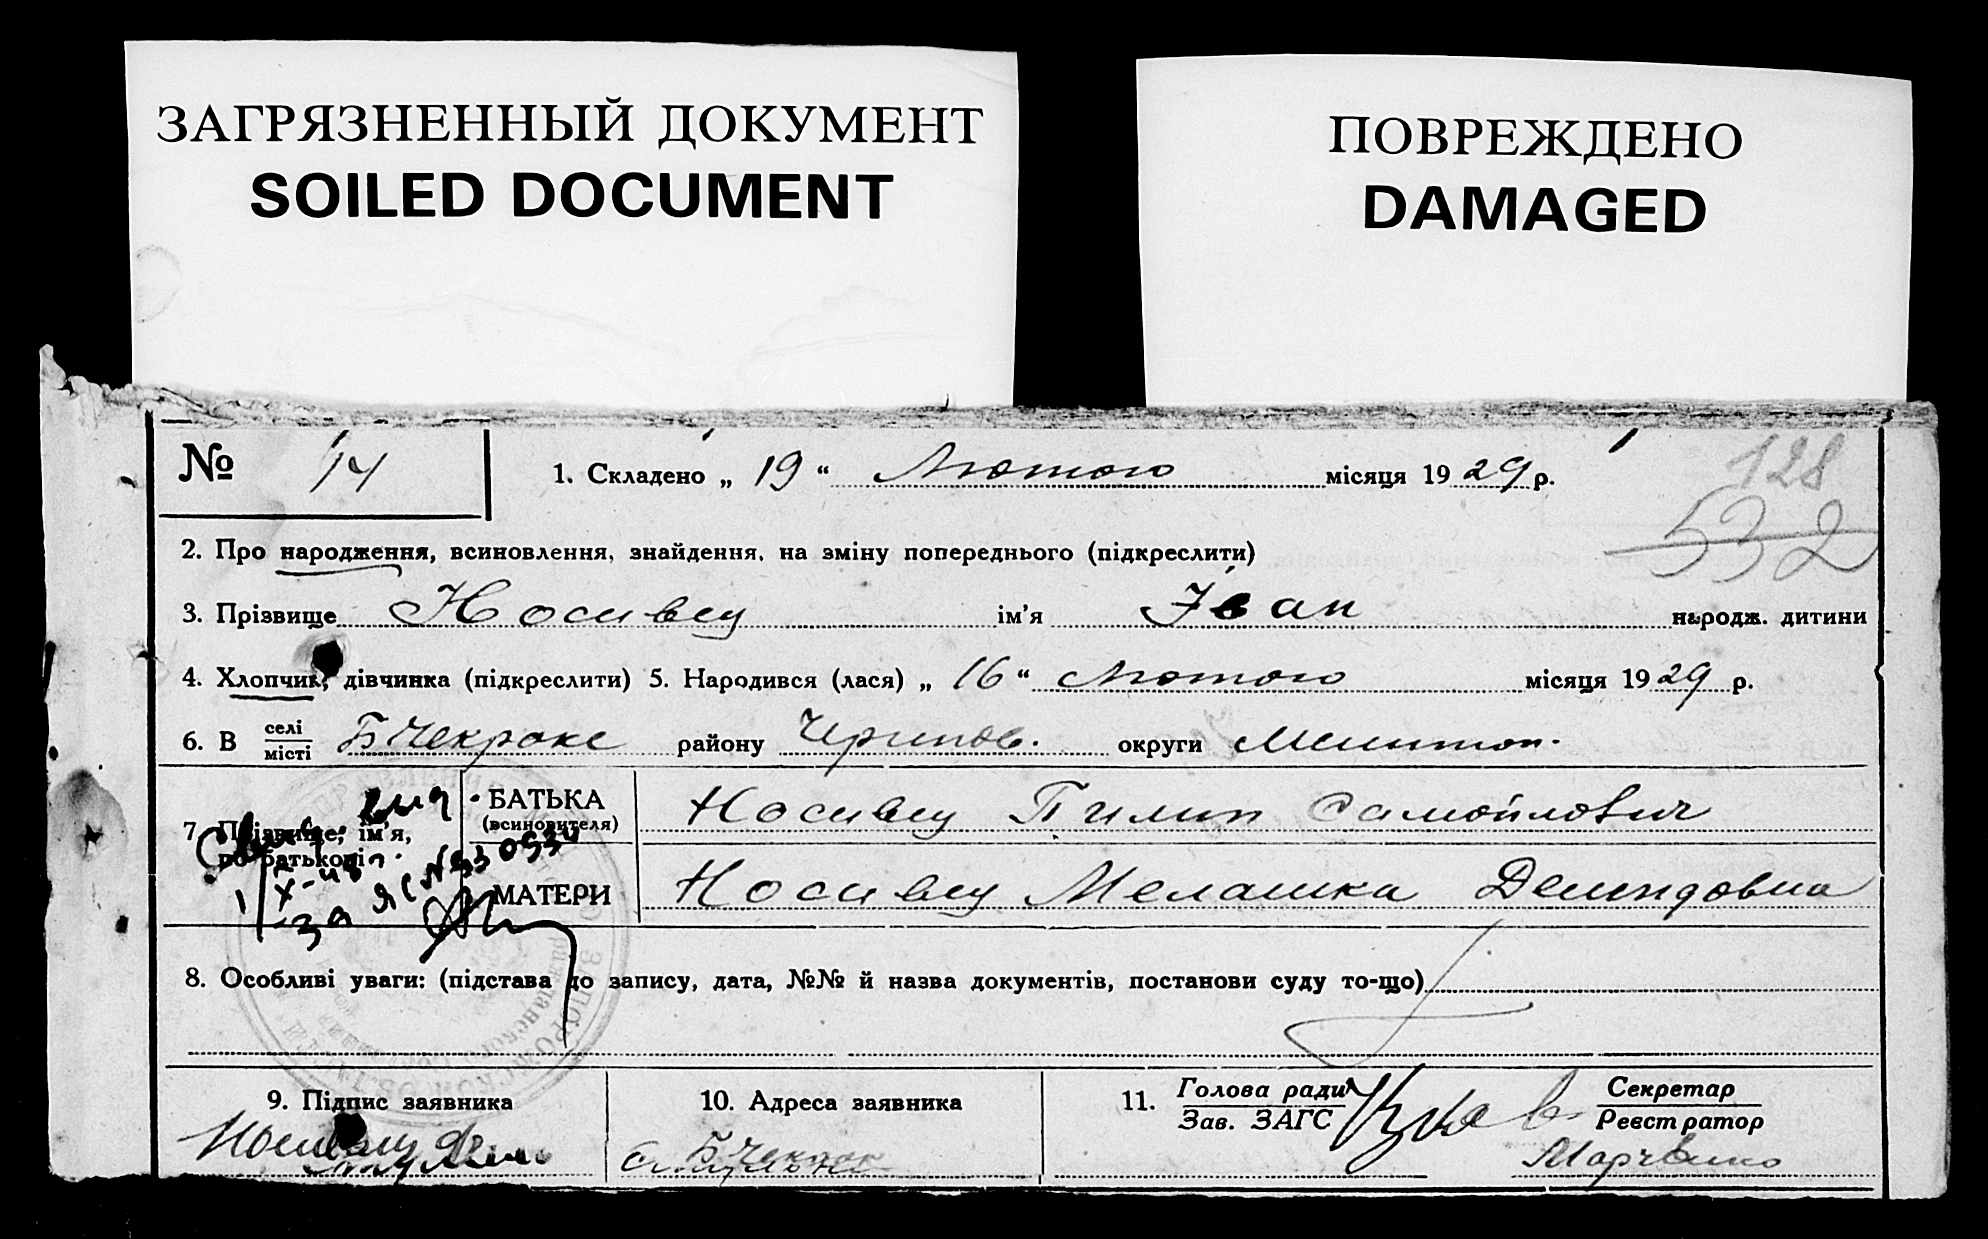 ЗАГРЯЗНЕННЫЙ ДОКУМЕНТ
SOILED DOCUMENT
ПОВРЕЖДЕНО
DAMAGED
№ 14
1. Складено „ 19 “ Лютого місяця 1929 р.
128
532
2. Про народження, всиновлення, знайдення, на зміну попереднього (підкреслити)
3. Прізвище Носивец ім’я Іван народж. дитини
4. Хлопчик, дівчинка (підкреслити) 5. Народився (лася) „ 16 “ Лютого місяця 1929 р.
6. В селі
місті Б Чекраке району округи Мелитоп.
7. Прізвище, ім’я, по батькові
БАТЬКА
(всиновителя) Носивец Пилип Самойлович
МАТЕРИ Носивец Мелашка Демидовна
8. Особливі уваги: (підстава до запису, дата, №№ й назва документів, постанови суду то-що)
9. Підпис заявника
10. Адреса заявника
11. Голова ради
Зав. ЗАГС
Секретар
Реєстратор